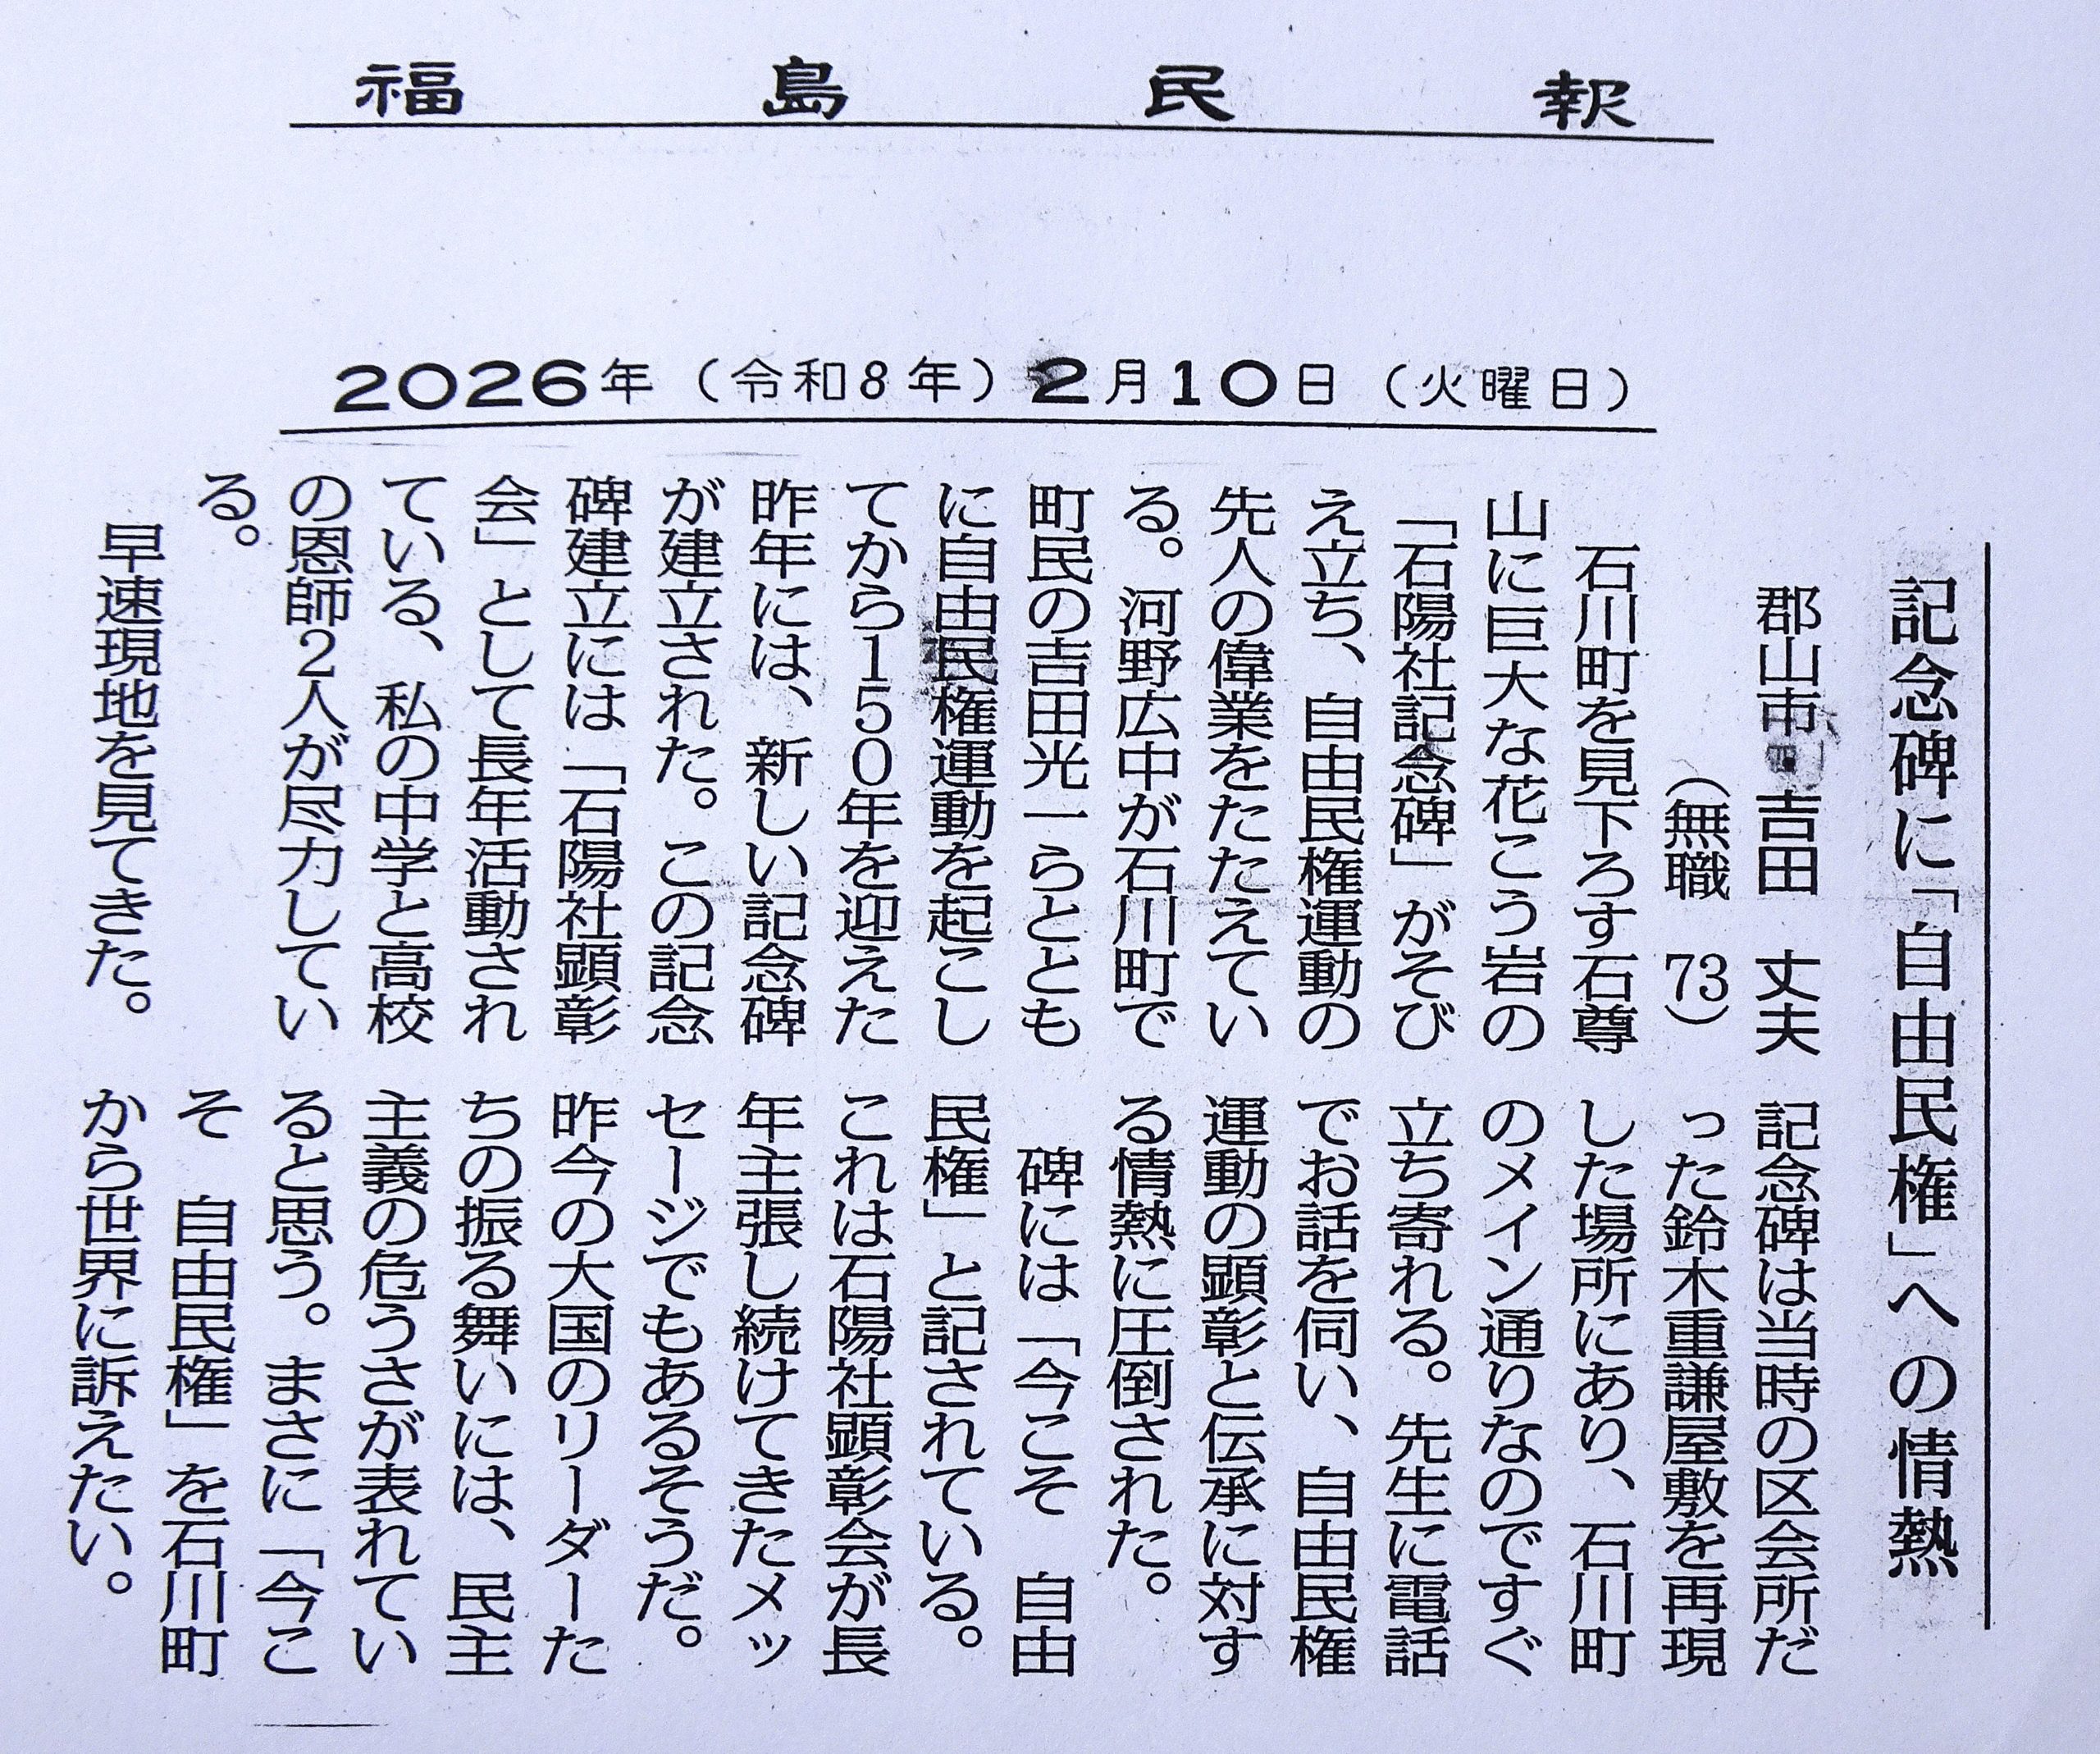 福島民報
2026年（令和8年）2月10日（火曜日）
記念碑に「自由民権」への情熱
郡山市・吉田　丈夫
（無職　73）
石川町を見下ろす石尊
山に巨大な花こう岩の
「石陽社記念碑」がそび
え立ち、自由民権運動の
先人の偉業をたたえてい
る。河野広中が石川町で
町民の吉田光一らととも
に自由民権運動を起こし
てから150年を迎えた
昨年には、新しい記念碑
が建立された。この記念
碑建立には「石陽社顕彰
会」として長年活動され
ている、私の中学と高校
の恩師2人が尽力してい
る。
早速現地を見てきた。
記念碑は当時の区会所だ
った鈴木重謙屋敷を再現
した場所にあり、石川町
のメイン通りなのですぐ
立ち寄れる。先生に電話
でお話を伺い、自由民権
運動の顕彰と伝承に対す
る情熱に圧倒された。
碑には「今こそ　自由
民権」と記されている。
これは石陽社顕彰会が長
年主張し続けてきたメッ
セージでもあるそうだ。
昨今の大国のリーダーた
ちの振る舞いには、民主
主義の危うさが表れてい
ると思う。まさに「今こ
そ　自由民権」を石川町
から世界に訴えたい。